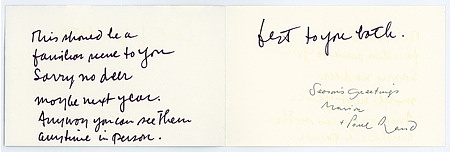 This should be a
familiar scene to you
Sorry no deer
maybe next year.
Anyway you can see them
anytime in person.
best to you both.
Season's greetings
Marion
+ Paul Rand